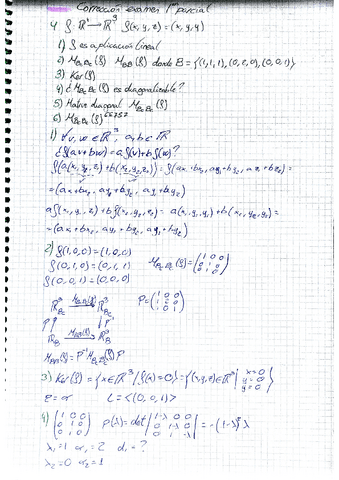 Corrección examen 1er parcial
4. f: R³ → R³ f(x, y, z) = (x, y, y)
1) f es aplicación lineal
2) M_BcBc(f) M_BB(f) donde B = {(1,1,1), (0,0,0), (0,0,1)}
3) Ker(f)
4) ¿M_BcBc(f) es diagonalizable?
5) Matriz diagonal M_BcBc(f)
6) M_BcBc(f)
1) ∀ v, w ∈ R³, a, b ∈ R
¿f(av+bw) = af(v)+bf(w)?
f(a(x₁, y₁, z₁) + b(x₂, y₂, z₂)) = f(ax₁+bx₂, ay₁+by₂, az₁+bz₂) =
= (ax₁+bx₂, ay₁+by₂, ay₁+by₂)
af(x₁, y₁, z₁) + bf(x₂, y₂, z₂) = a(x₁, y₁, y₁) + b(x₂, y₂, y₂) =
= (ax₁+bx₂, ay₁+by₂, ay₁+by₂)
2) f(1,0,0) = (1,0,0)
f(0,1,0) = (0,1,1) M_BcBc(f) = (1 0 0 / 0 1 0 / 0 1 0)
f(0,0,1) = (0,0,0)
R³_Bc → R³_Bc
P↑ ↑P
R³_B M_BB(f) → R³_B
M_BB(f) = P⁻¹ M_BcBc(f) P
3) Ker(f) = {x ∈ R³ / f(x) = 0} = {(x,y,z) ∈ R³ | x=0 y=0 y=0}
z = α L = <(0,0,1)>
4) (1 0 0 / 0 1 0 / 0 1 0) p(λ) = det |1-λ 0 0 / 0 1-λ 0 / 0 1 -λ| = -(1-λ)²λ
λ₁=1 α₁=2 d₁=?
λ₂=0 α₂=1